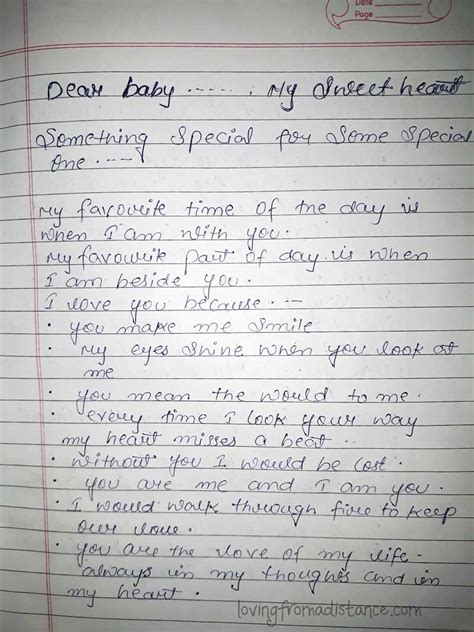 Date
Page
Dear baby ...... My Sweet heart
Something special for some special
one ....
My favourite time of the day is
when I am with you.
My favourite part of day is when
I am beside you.
I love you because ...
• you make me smile
• My eyes shine when you look at
me
• you mean the would to me.
• every time I look your way
my heart misses a beat.
• without you I would be lost.
• you are me and I am you.
• I would walk through fire to keep
our love.
• you are the love of my life.
always in my thoughts and in
my heart.
lovingfromadistance.com